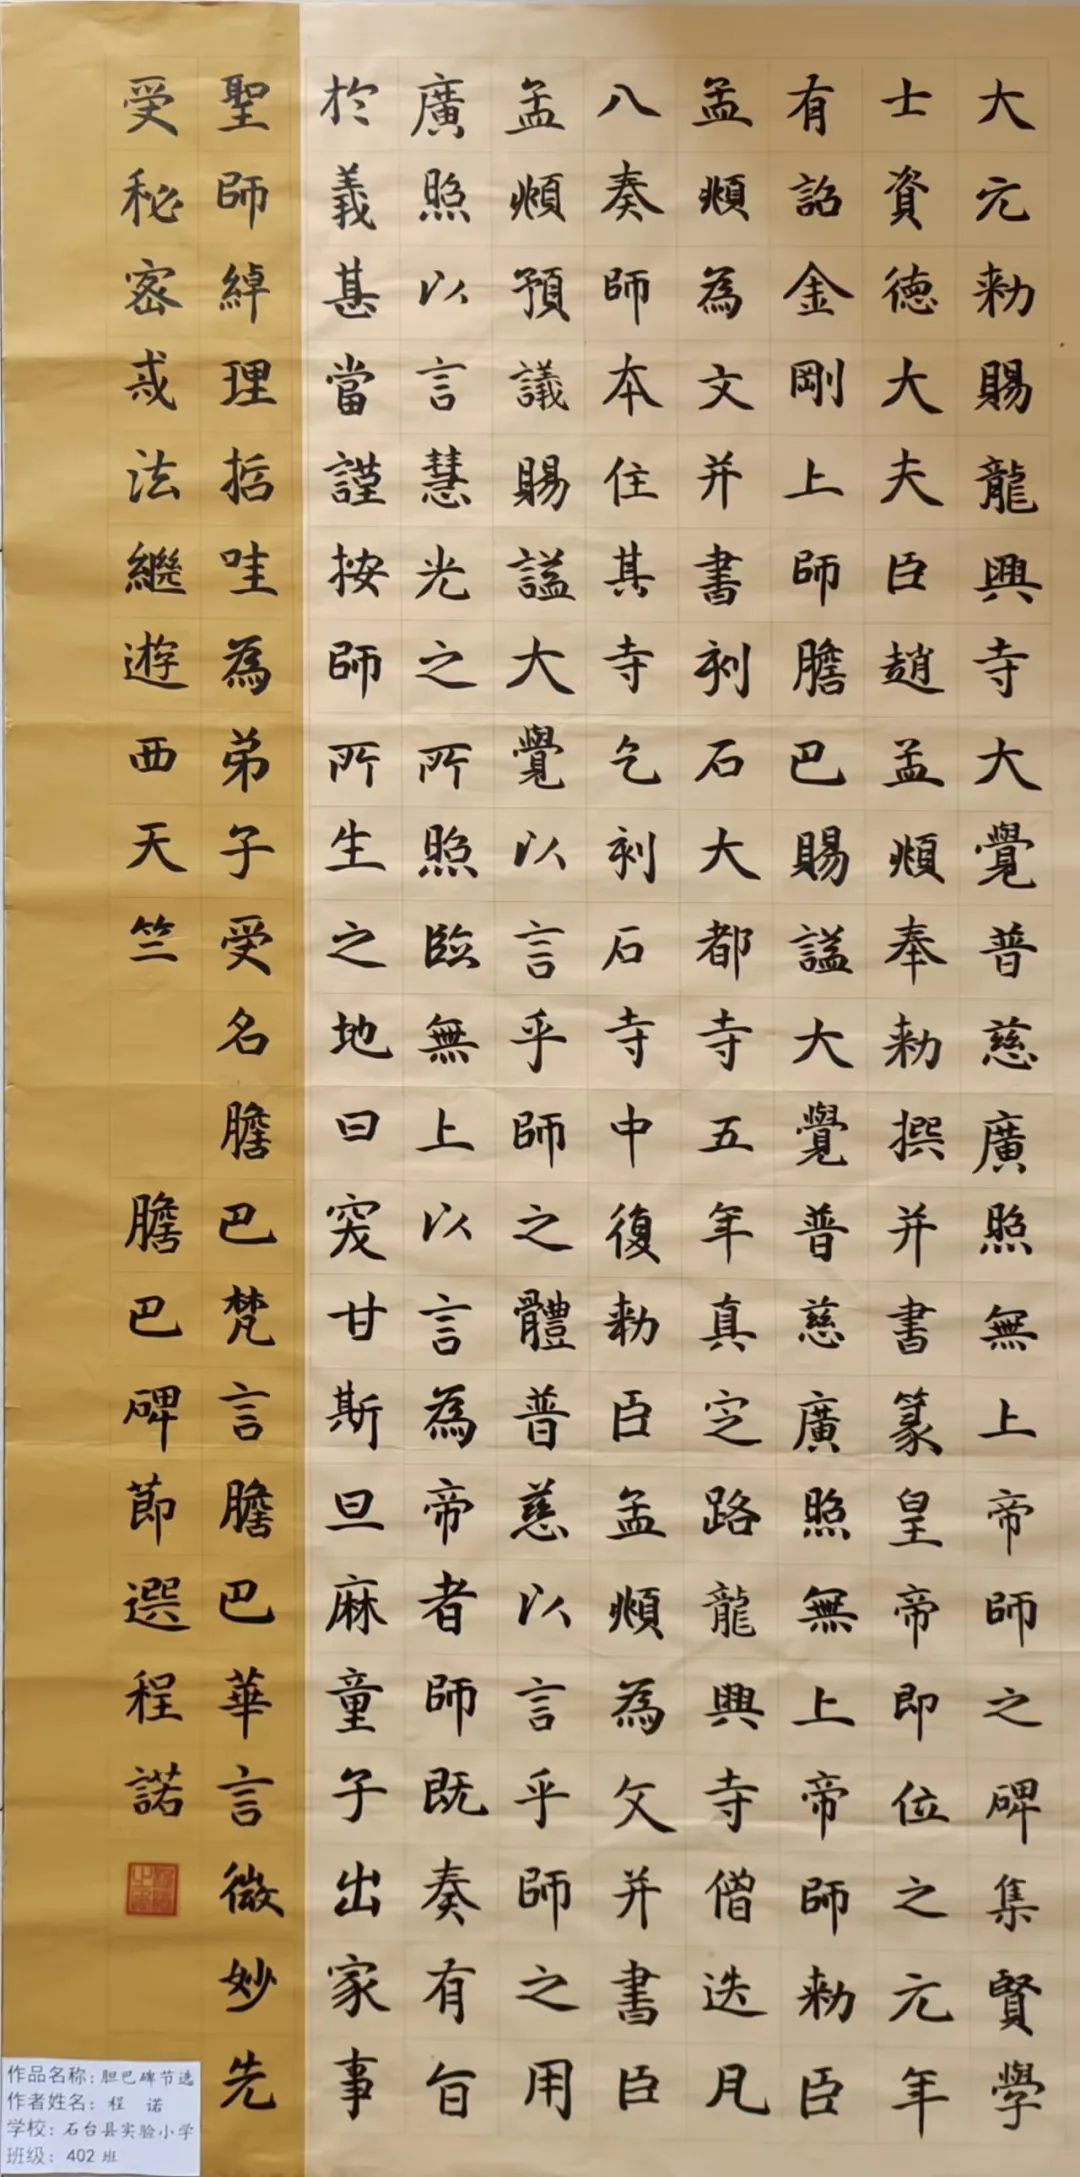 大元勑賜龍興寺大覺普慈廣照無上帝師之碑集賢學
士資德大夫臣趙孟頫奉勑撰并書篆皇帝即位之元年
有詔金剛上師膽巴賜謚大覺普慈廣照無上帝師勑臣
孟頫為文并書刻石大都寺五年真定路龍興寺僧迭凡
八奏師本住其寺乞刻石寺中復勑臣孟頫為文并書臣
孟頫預議賜謚大覺以言乎師之體普慈以言乎師之用
廣照以言慧光之所照臨無上以言為帝者師既奏有旨
於義甚當謹按師所生之地曰突甘斯旦麻童子出家事
聖師綽理哲哇為弟子受名膽巴梵言膽巴華言微妙先
受秘密戒法繼遊西天竺 膽巴碑節選程諾
作品名称:胆巴碑节选
作者姓名:程 诺
学校:石台县实验小学
班级:402班